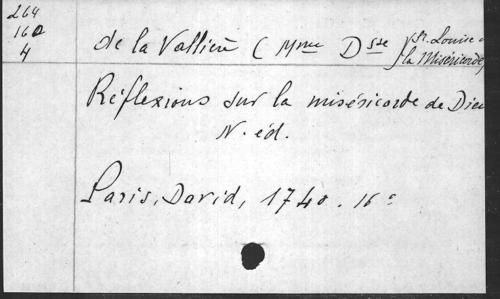 264
160
4
de la Vallière ( Mme Dsse Sr. Louise
la Miséricorde)
Réflexions sur la miséricorde de Dieu
N. éd.
Paris, David, 1740. 16°